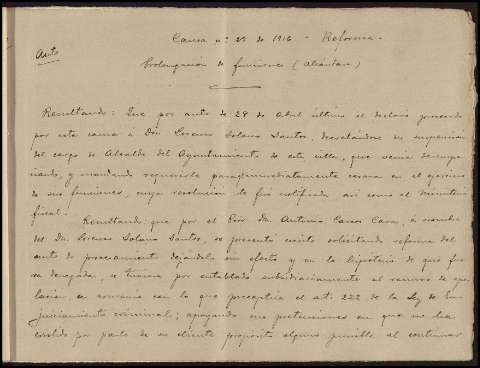 Causa nº 28 de 1916 - Reforma -
Auto
Prolongación de funciones (Alcántara)
Resultando: Que por auto de 28 de Abril último se declaró procesado
por esta causa á Don Lorenzo Solano Santos, decretándose su suspensión
del cargo de Alcalde del Ayuntamiento de esta villa, que venía desempe
ñando, y mandando requerirle para inmediatamente cesara en el ejercicio
de sus funciones, cuya resolución le fué notificada así como al Ministerio
fiscal.
Resultando: que por el Pror. Dn. Antonio Cava, á nombre
del Dn. Lorenzo Solano Santos, se presentó escrito solicitando reforma del
auto de procesamiento dejándolo sin efecto y en la hipótesis de que fue
ra denegada, se tuviera por entablado subsidiariamente el recurso de ape
lación, en armonía con lo que preceptúa el art. 222 de la Ley de En
juiciamiento criminal; apoyando sus pretensiones en que no ha
existido por parte de su cliente propósito alguno punible al continuar